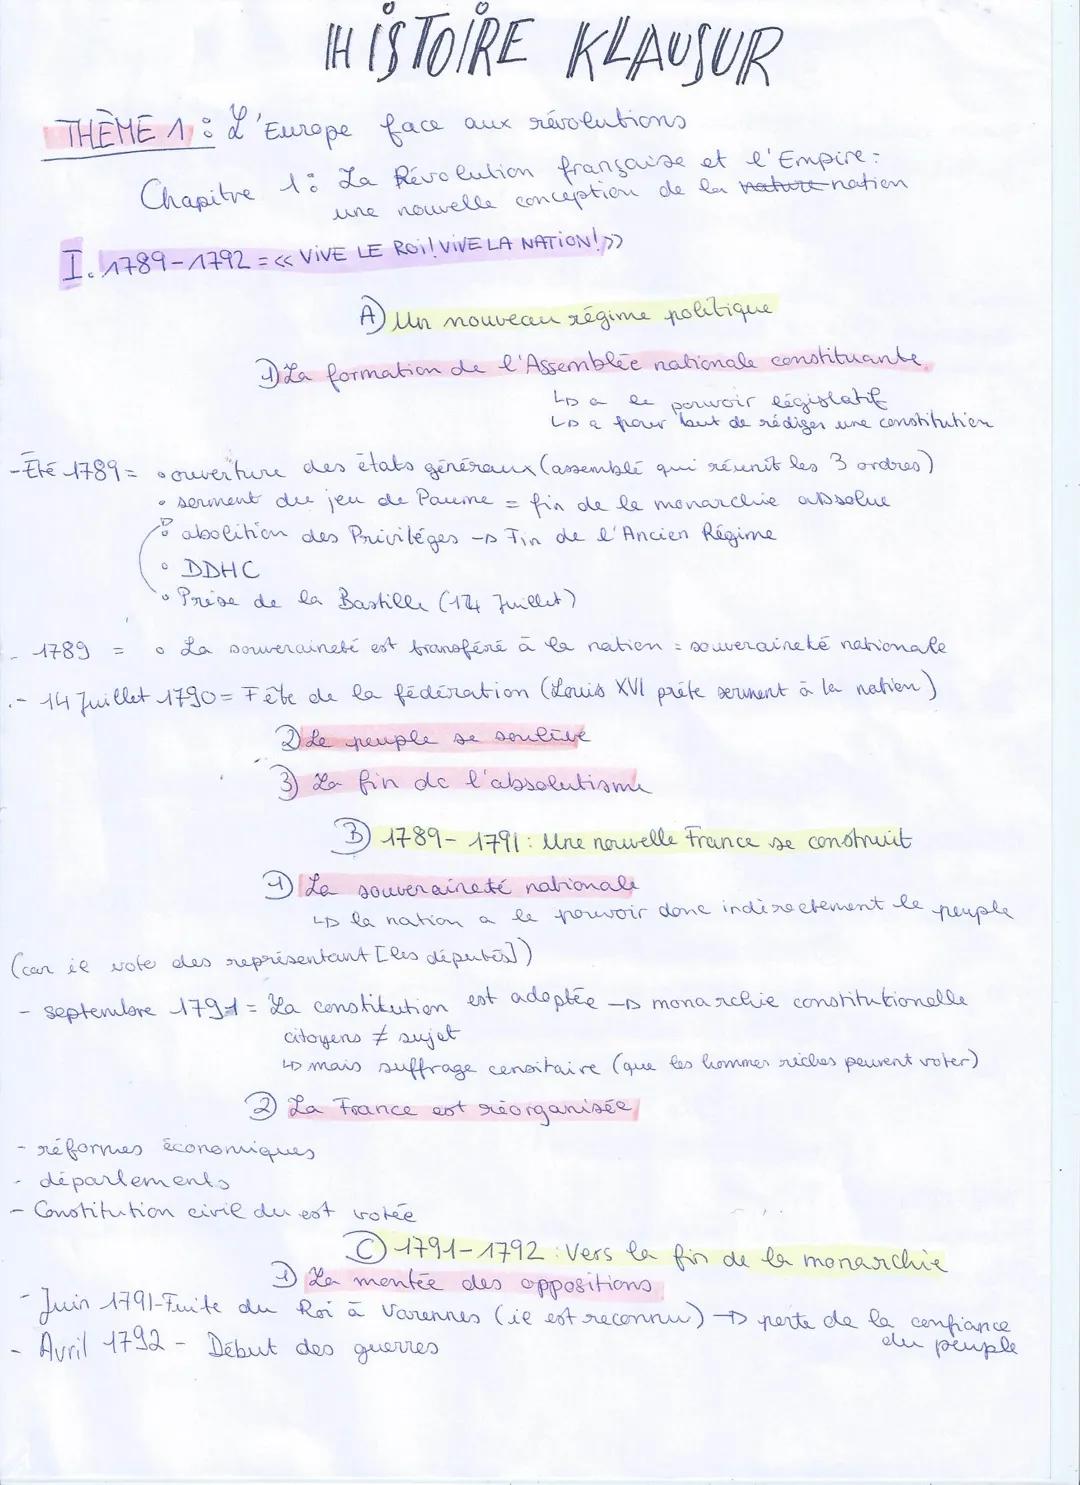 HISTOIRE KLAUSUR
THÈME 1 : L'Europe face aux révolutions
Chapitre 1 : La Révolution française et l'Empire :
une nouvelle conception de la nature nation
I. 1789-1792 = << VIVE LE ROI! VIVE LA NATION! >>
A) Un nouveau régime politique
1) La formation de l'Assemblée nationale constituante.
↳ a le pouvoir législatif
↳ a pour but de rédiger une constitution
- Été 1789 = • ouverture des états généraux (assemblé qui réunit les 3 ordres)
• serment du jeu de Paume = fin de la monarchie absolue
• abolition des Priviléges → Fin de l'Ancien Régime
• DDHC
• Prise de la Bastille (14 Juillet)
- 1789 = • La souveraineté est transféré à la nation = souveraineté nationale
- 14 Juillet 1790 = Fête de la fédération (Louis XVI prête serment à la nation)
2) Le peuple se soulève
3) La fin de l'absolutisme
B) 1789-1791 : Une nouvelle France se construit
1) La souveraineté nationale
↳ la nation a le pouvoir donc indirectement le peuple
(car il vote des représentant [les députés])
- septembre 1791 = La constitution est adoptée → monarchie constitutionelle
citoyens ≠ sujet
↳ mais suffrage censitaire (que les hommes riches peuvent voter)
2) La France est réorganisée
- réformes économiques
- départements
- Constitution civil du est votée
C) 1791-1792 : Vers la fin de la monarchie
1) La montée des oppositions
- Juin 1791-Fuite du Roi à Varennes (il est reconnu) → perte de la confiance
du peuple
- Avril 1792 - Début des guerres